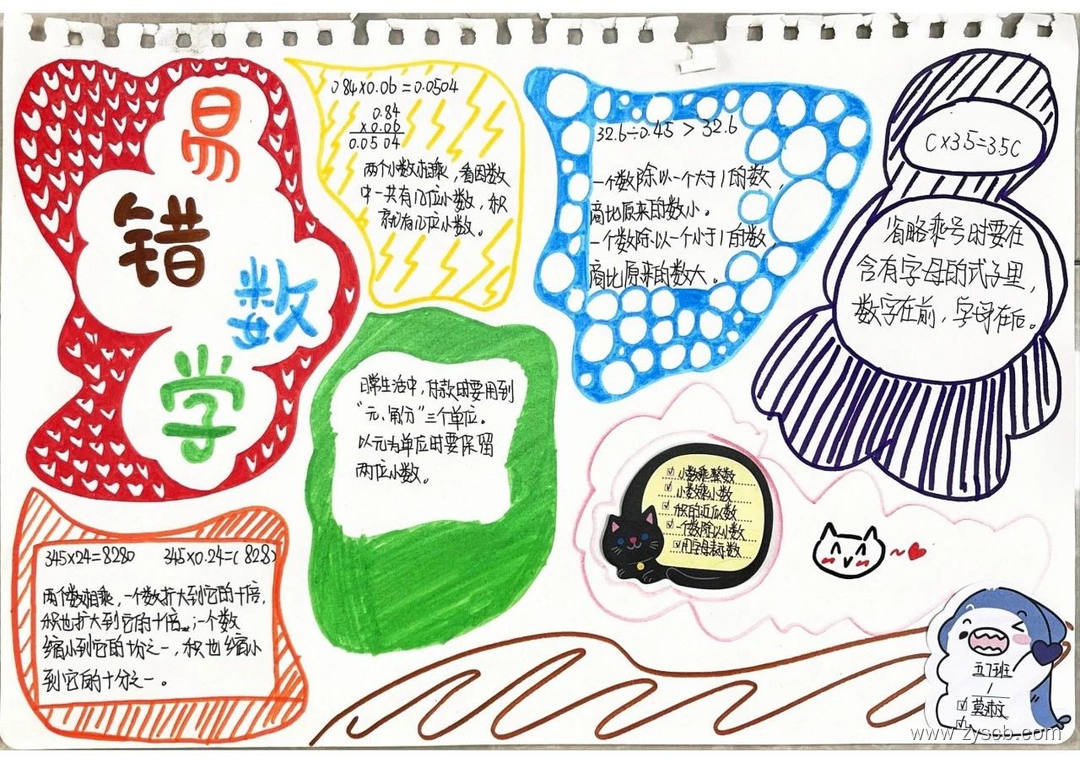 易
错
数
学
0.84×0.06=0.0504
0.84
×0.06
0.0504
两个小数相乘,看因数
中一共有几位小数,积
就有几位小数。
32.6÷0.45 > 32.6
一个数除以一个大于1的数,
商比原来的数小。
一个数除以一个小于1的数,
商比原来的数大。
C×35=35C
省略乘号时要在
含有字母的式子里,
数字在前,字母在后。
日常生活中,付款时要用到
“元、角、分”三个单位。
以元为单位时要保留
两位小数。
小数乘整数
小数乘小数
积的近似数
一个数除以小数
用字母表示数
345×24=8280 345×0.24=( 828)
两个数相乘,一个数扩大到它的十倍,
积也扩大到它的十倍。;一个数
缩小到它的十分之一,积也缩小
到它的十分之一。
五7班
www.zyscb.com